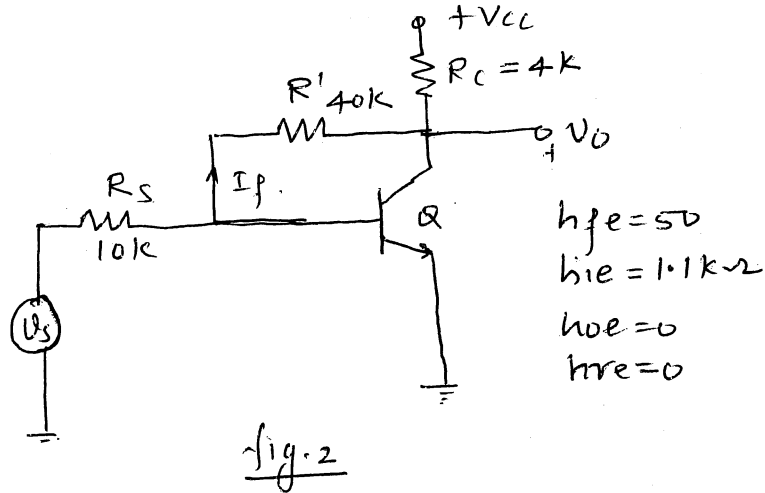 +Vcc
Rc = 4k
R' 40k
Vo
+
If.
Rs
10k
Q
Vs
hfe = 50
hie = 1.1kΩ
hoe = 0
hre = 0
fig. 2